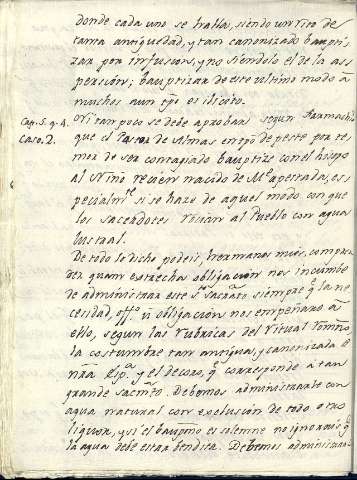 donde cada uno se halla, siendo un Rito de
tanta antiguedad, y tan canonizado baupti-
zar por infusion, y no siendolo el de la as
persion; bauptizar de este ultimo modo à
muchos aun es ilicito.
Cap. 5. q. 4. Ni tan poco se debe aprobar segun
Caso. 2. que el de Almas en tpo de peste por te
mor de ser contagiado bauptize con el hisopo
al Niño recien nacido de Me. apestada, es
pecialmte. si se haze de aquel modo con que
los Sacerdotes rocian al Pueblo con agua
lustral.
De todo lo dicho podeis, hermanos mios, compren
der quan estrecha obligacion nos incumbe
de administrar este Sto. Sacramto siempre q. la ne
cesidad, offo. ù obligacion nos empeñare à
ello, segun las Rubricas del Ritual Romno,
la costumbre tan antigua, y canonizada
nra. y el decoro, q. corresponde à tan
grande sacmto. Debemos administrarlo con
agua natural con exclusion de todo otro
liquor, y si el baupmo es solemne no ignorais q.
la agua debe estar bendita. Debemos administrar